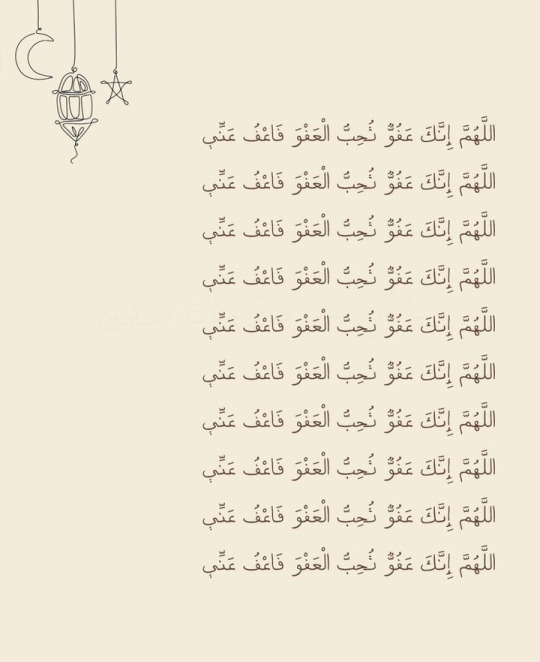 اللَّهُمَّ إِنَّكَ عَفُوٌّ تُحِبُّ الْعَفْوَ فَاعْفُ عَنِّي
اللَّهُمَّ إِنَّكَ عَفُوٌّ تُحِبُّ الْعَفْوَ فَاعْفُ عَنِّي
اللَّهُمَّ إِنَّكَ عَفُوٌّ تُحِبُّ الْعَفْوَ فَاعْفُ عَنِّي
اللَّهُمَّ إِنَّكَ عَفُوٌّ تُحِبُّ الْعَفْوَ فَاعْفُ عَنِّي
اللَّهُمَّ إِنَّكَ عَفُوٌّ تُحِبُّ الْعَفْوَ فَاعْفُ عَنِّي
اللَّهُمَّ إِنَّكَ عَفُوٌّ تُحِبُّ الْعَفْوَ فَاعْفُ عَنِّي
اللَّهُمَّ إِنَّكَ عَفُوٌّ تُحِبُّ الْعَفْوَ فَاعْفُ عَنِّي
اللَّهُمَّ إِنَّكَ عَفُوٌّ تُحِبُّ الْعَفْوَ فَاعْفُ عَنِّي
اللَّهُمَّ إِنَّكَ عَفُوٌّ تُحِبُّ الْعَفْوَ فَاعْفُ عَنِّي
اللَّهُمَّ إِنَّكَ عَفُوٌّ تُحِبُّ الْعَفْوَ فَاعْفُ عَنِّي